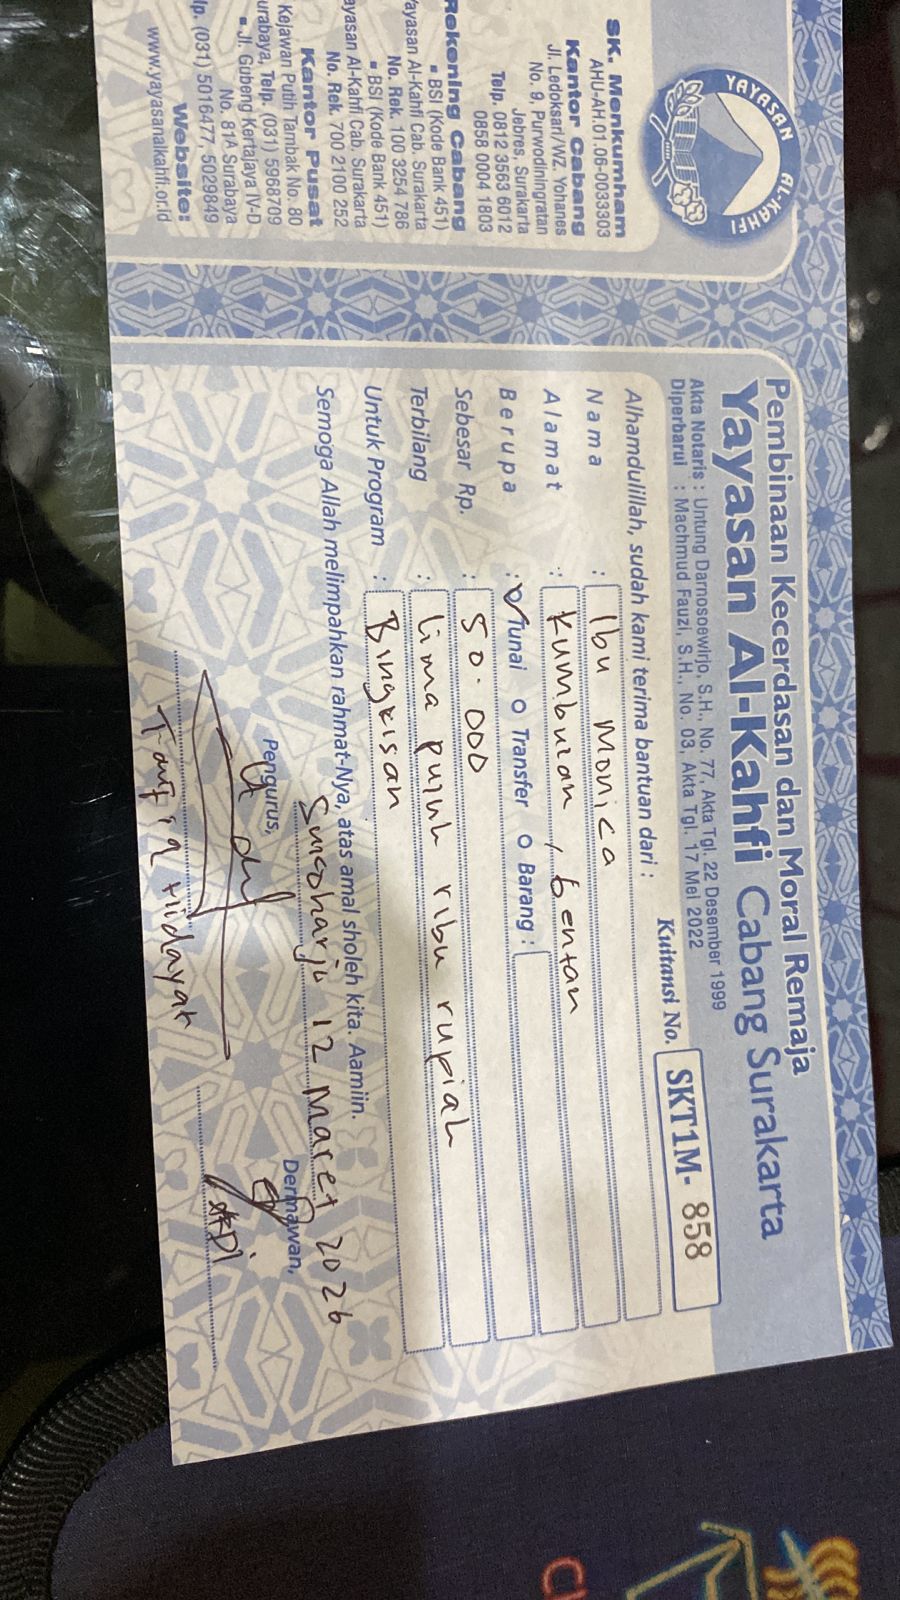 YAYASAN AL-KAHFI
SK. Menkumham
AHU-AH.01.06-0033303
Kantor Cabang
Jl. Ledoksari/WZ. Yohanes
No. 9, Purwodiningratan
Jebres, Surakarta
Telp. 0812 3563 6012
0858 0004 1803
Rekening Cabang
▪ BSI (Kode Bank 451)
Yayasan Al-Kahfi Cab. Surakarta
No. Rek. 100 3254 786
▪ BSI (Kode Bank 451)
Yayasan Al-Kahfi Cab. Surakarta
No. Rek. 700 2100 252
Kantor Pusat
Kejawan Putih Tambak No. 80
Surabaya, Telp. (031) 5968709
▪ Jl. Gubeng Kertajaya IV-D
No. 81A Surabaya
Telp. (031) 5016477, 5029849
Website:
www.yayasanalkahfi.or.id
Pembinaan Kecerdasan dan Moral Remaja
Yayasan Al-Kahfi Cabang Surakarta
Akta Notaris : Untung Darnosoewirjo, S.H., No. 77, Akta Tgl. 22 Desember 1999
Diperbarui : Machmud Fauzi, S.H., No. 03, Akta Tgl. 17 Mei 2022
Kuitansi No. SKT1M- 858
Alhamdulillah, sudah kami terima bantuan dari :
Nama : Ibu Monica
Alamat : Kumbulan, Gentan
Berupa : Tunai O Transfer O Barang :
Sebesar Rp. : 50.000
Terbilang : lima puluh ribu rupiah
Untuk Program : Bingkisan
Semoga Allah melimpahkan rahmat-Nya, atas amal sholeh kita. Aamiin.
Sukoharjo 12 Maret 2026
Pengurus, Dermawan,
Taufiq Hidayat ARDI